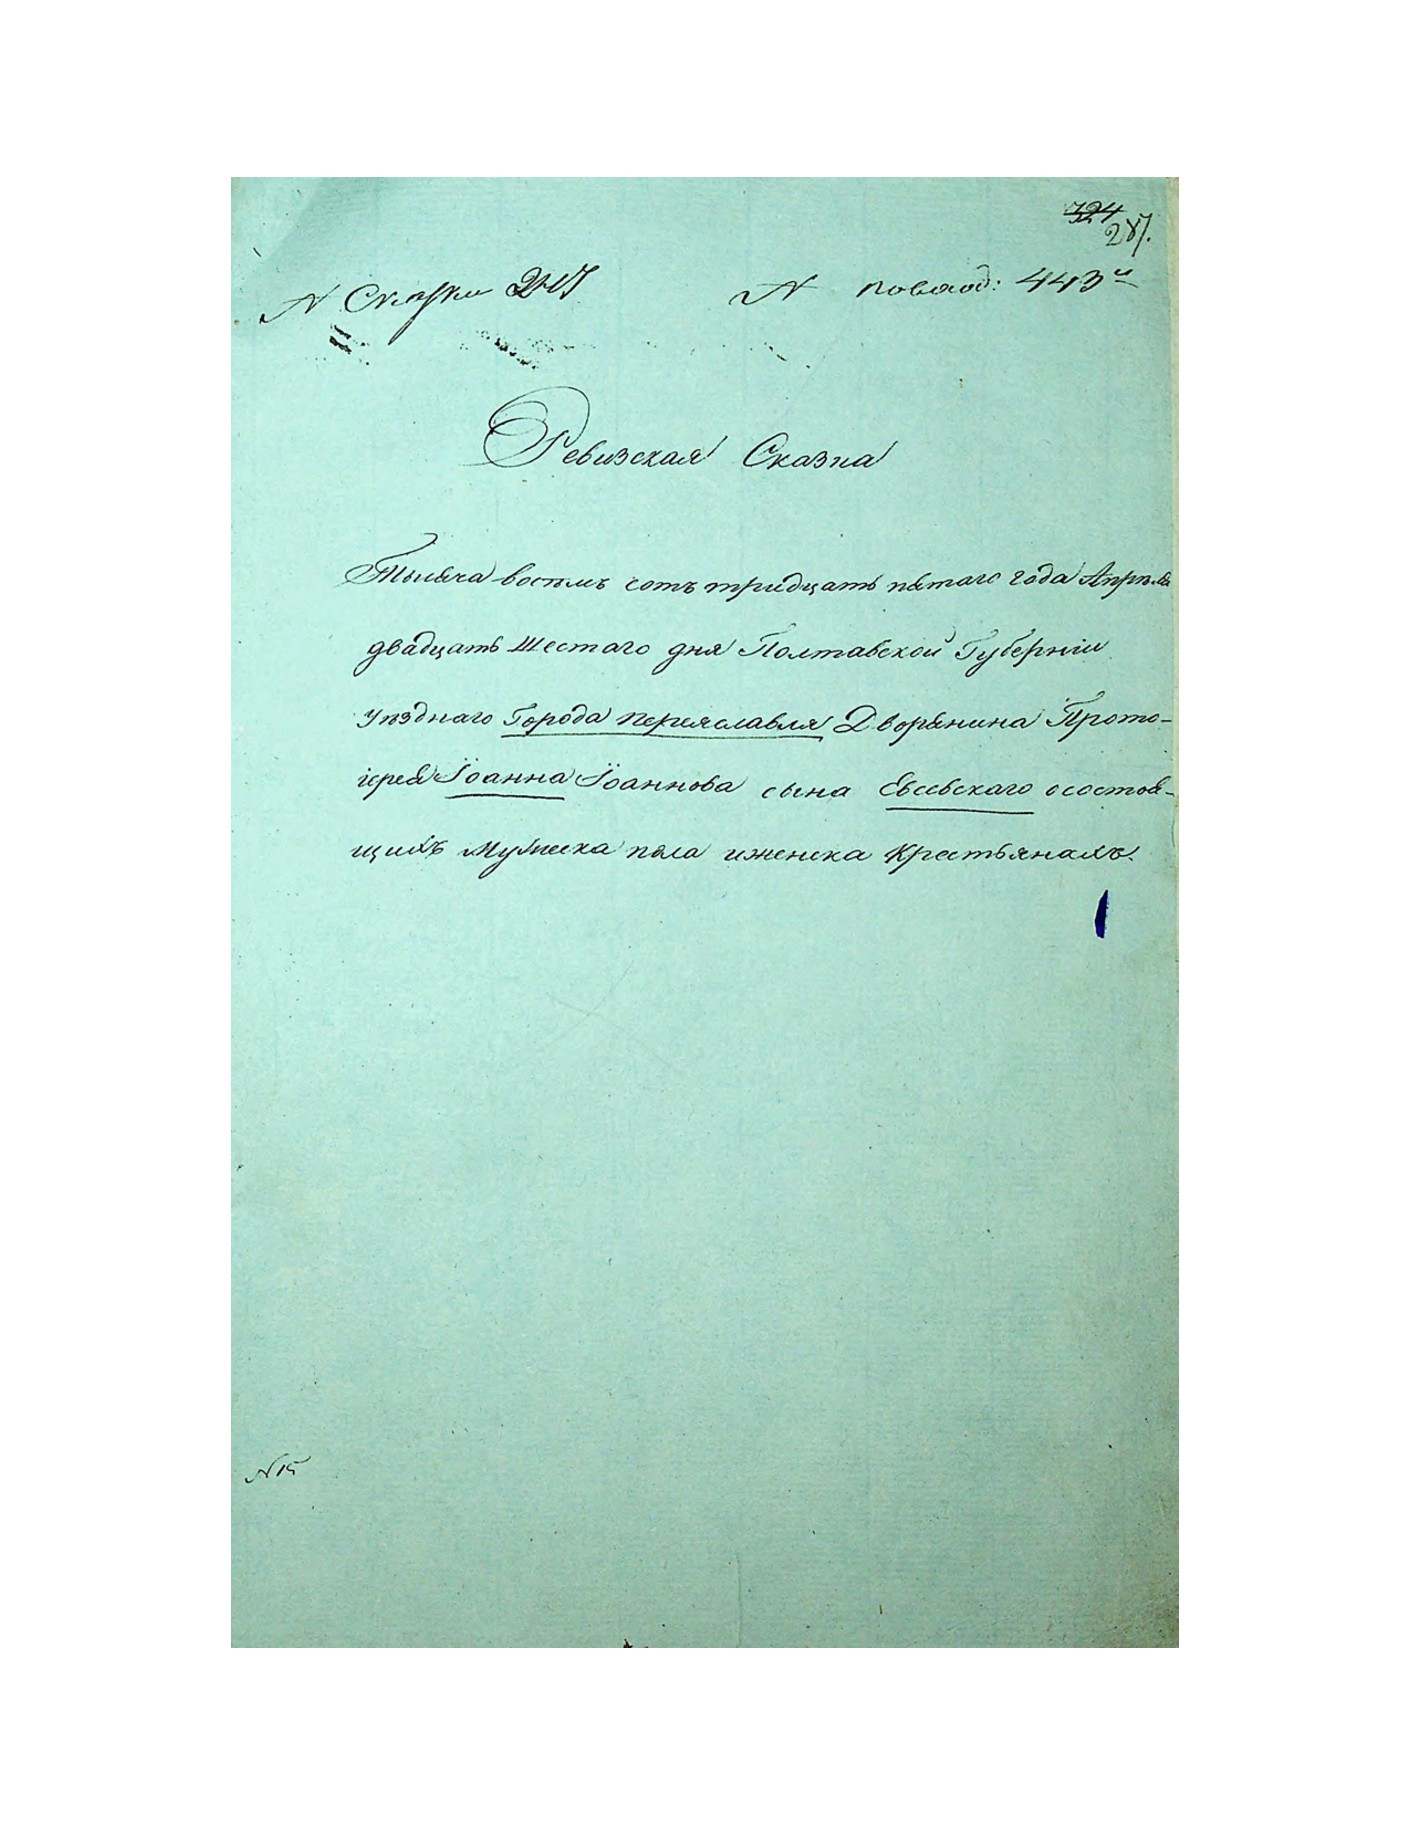 324
287.
N Сказки 247 N повлад: 443й
Ревизская Сказка
Тысяча восемь сотъ тридцать пятаго года Апреля
двадцать шестаго дня Полтавской Губерніи
уезднаго Города Переяславля Дворянина Прото-
іерея Іоанна Іоаннова сына Евсевскаго осостоя-
щихъ Мужеска пола иженска Крестьянахъ.
N 15